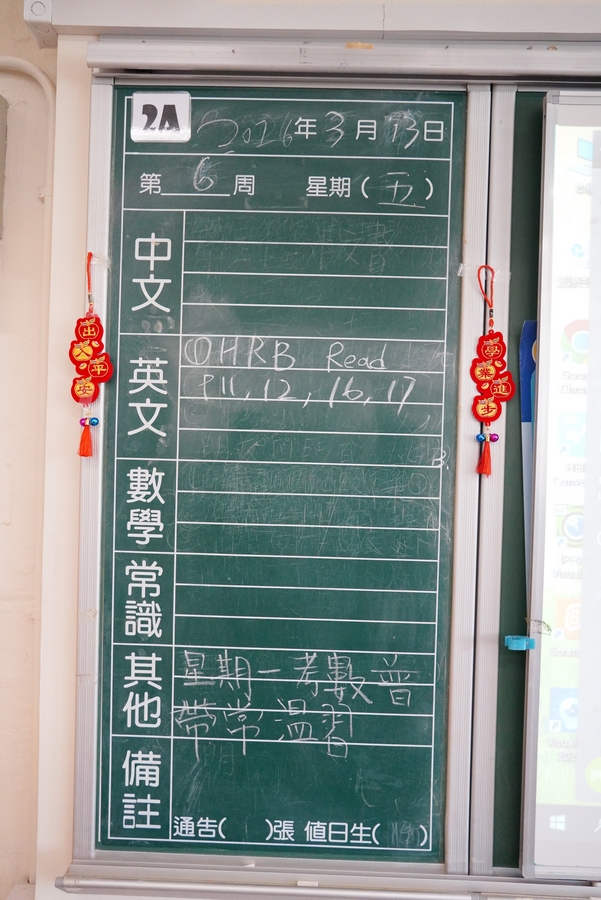 2A
2026年3月13日
第6周 星期(五)
中文
英文
①HRB Read
P11, 12, 16, 17
數學
常識
其他
星期一考數普
帶常溫習
備註
通告( )張 值日生( )
出入平安
學業進步